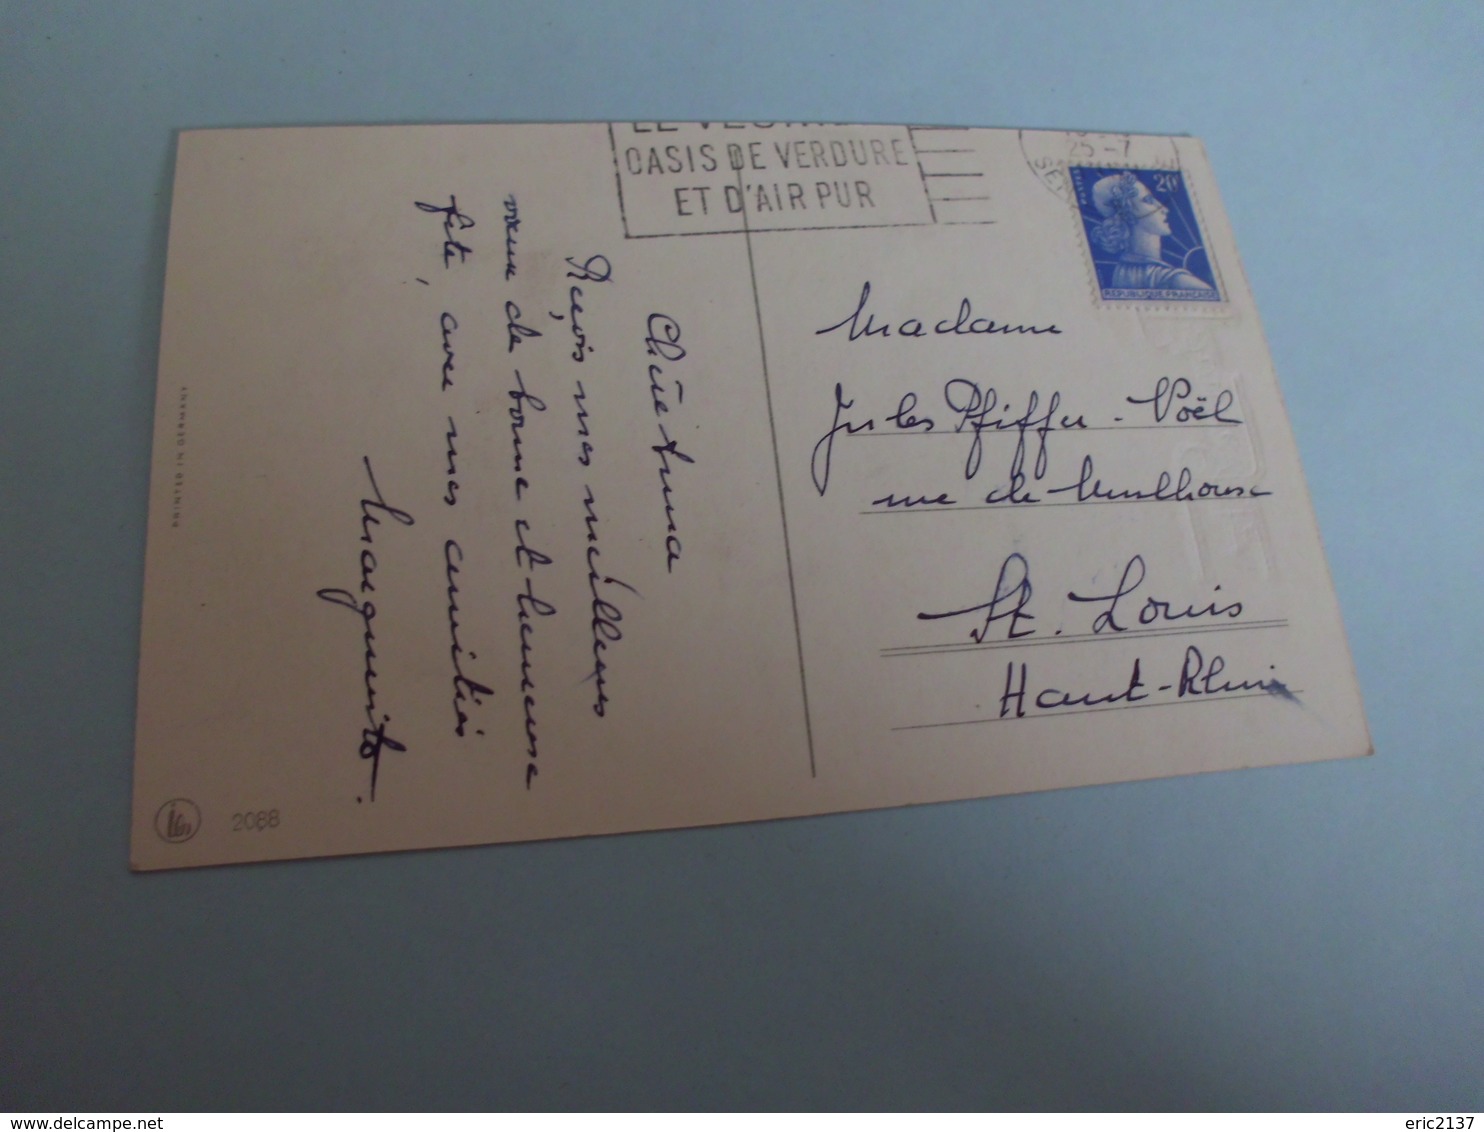 LE VÉSINET
OASIS DE VERDURE
ET D'AIR PUR
25-7
POSTES
20F
REPUBLIQUE FRANÇAISE
Chère Anna
Reçois mes meilleurs
vœux de bonne et heureuse
fête, avec mes amitiés
Marguerite.
Madame
Jules Pfiffer-Noël
rue de Mulhouse
St. Louis
Haut-Rhin
PRINTED IN GERMANY
2088
eric2137